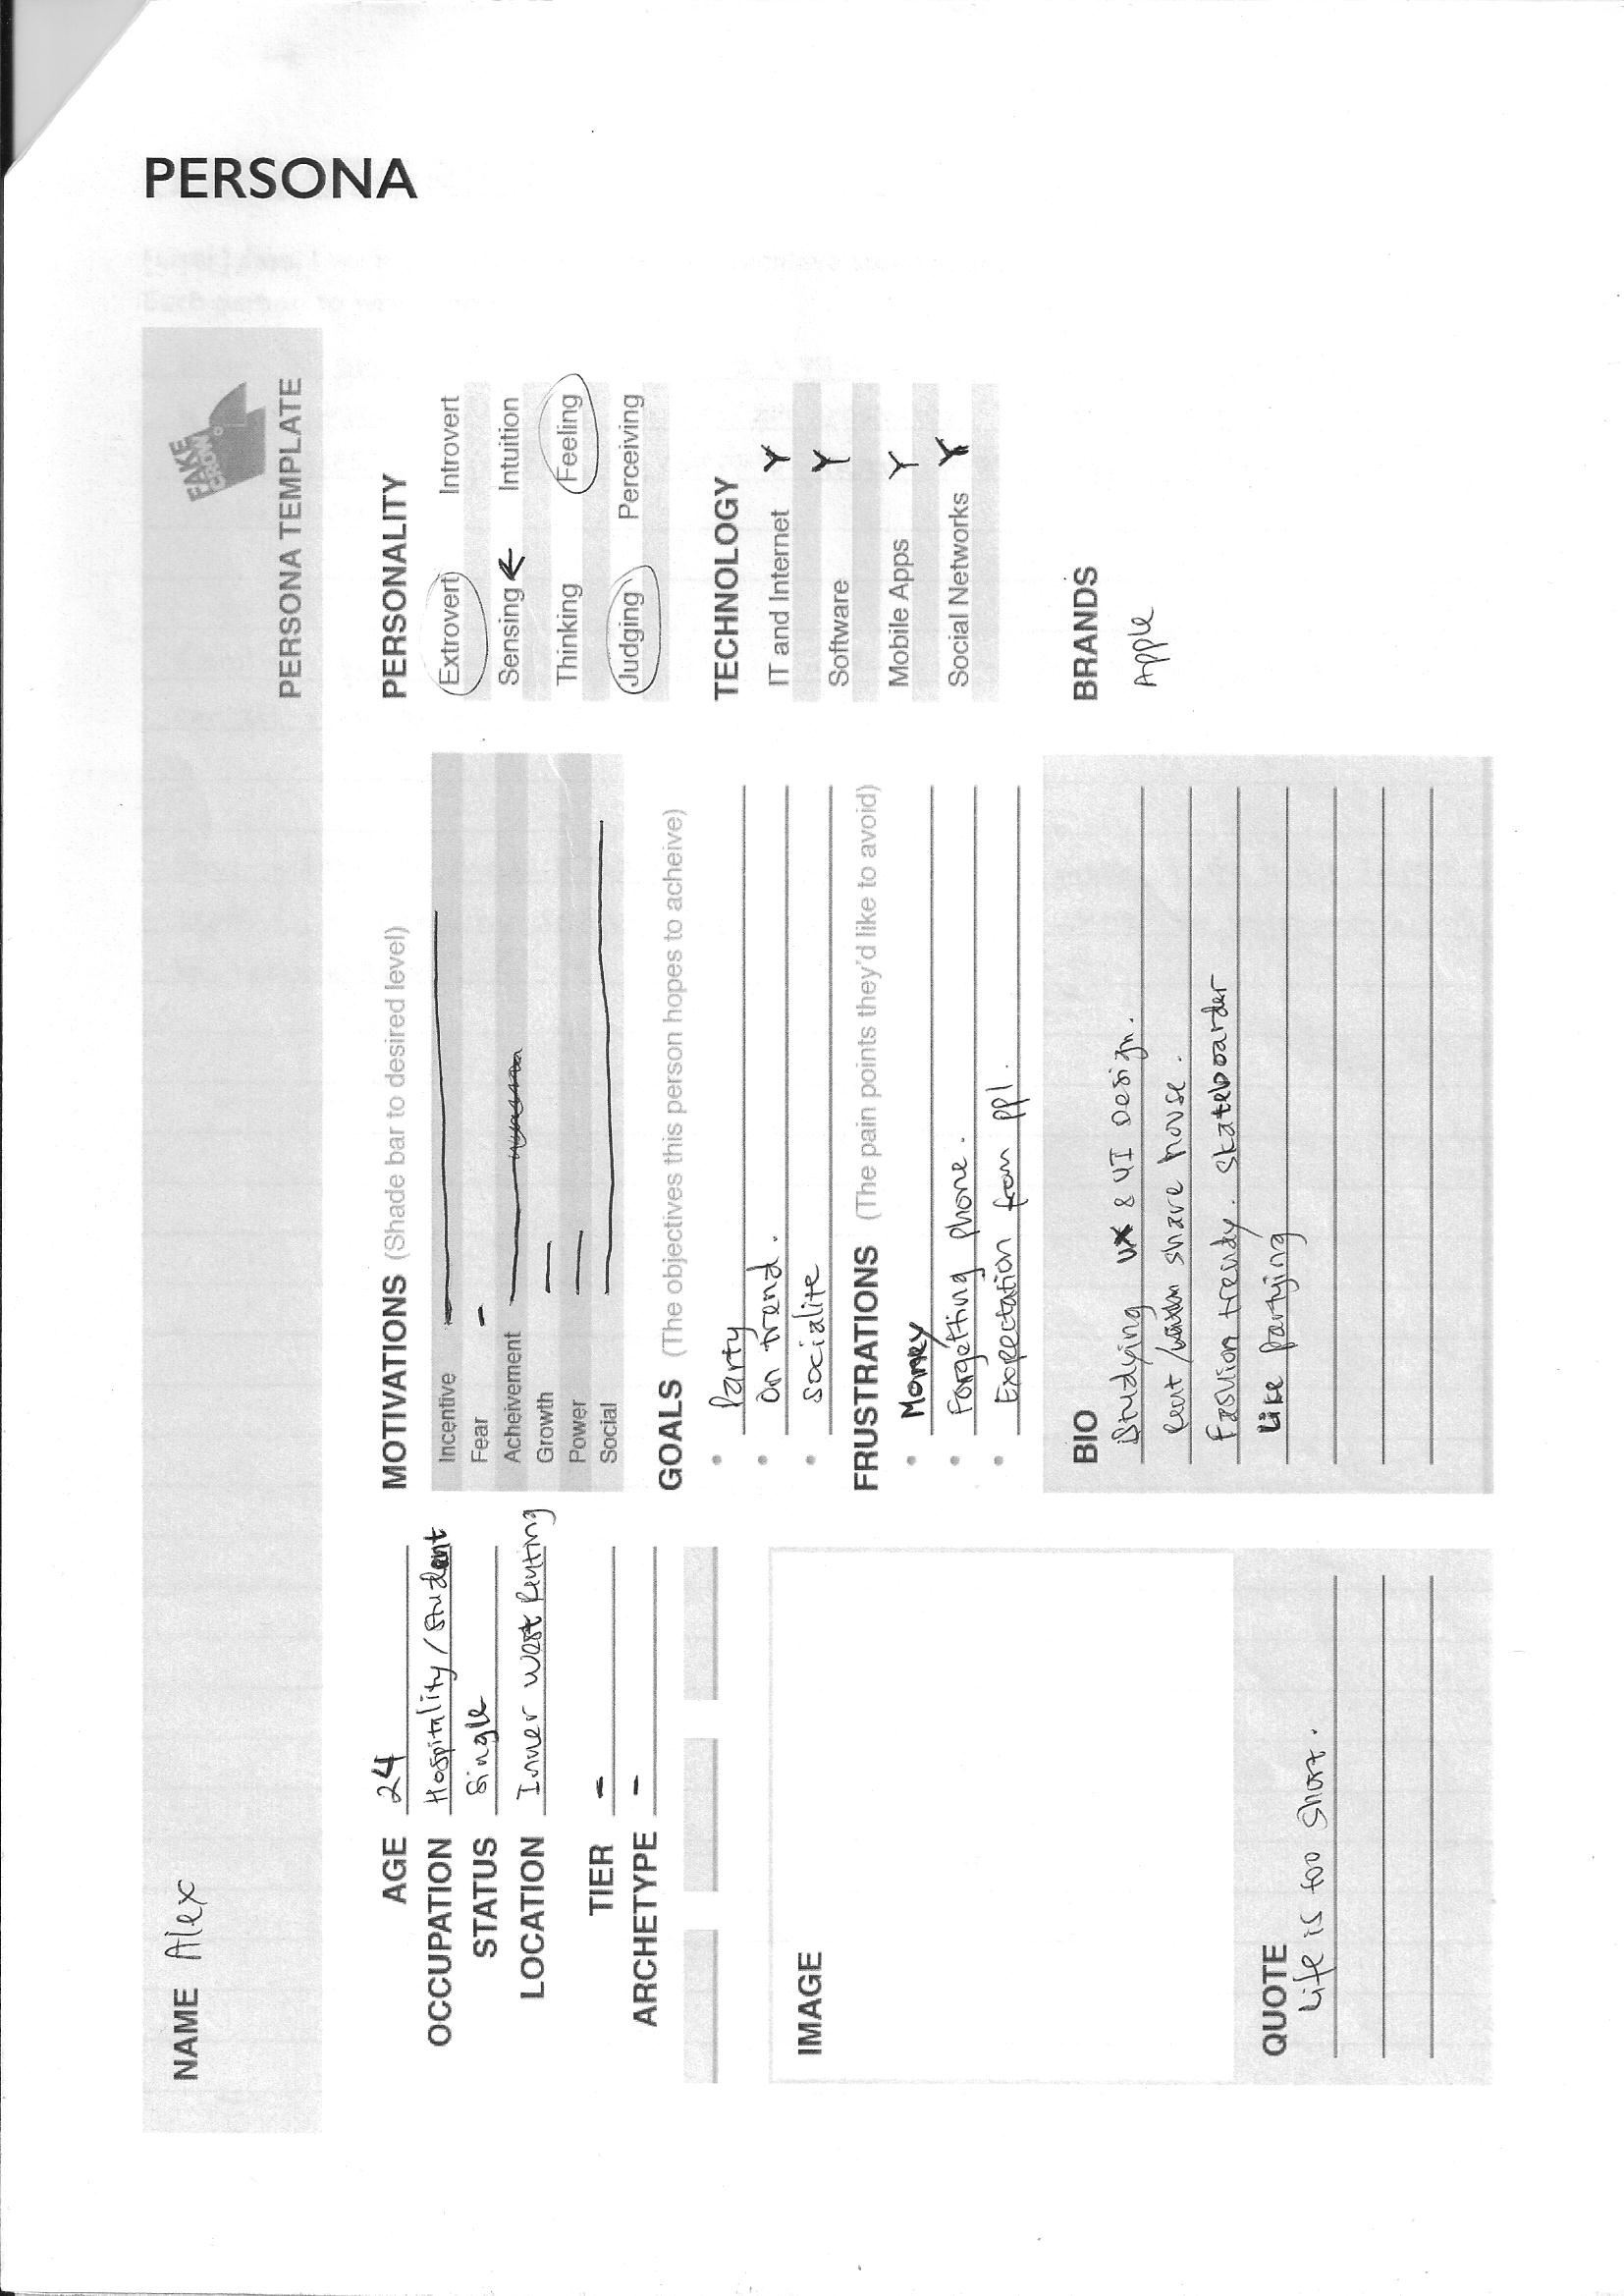 PERSONA
NAME Alex
FAKE CROW
PERSONA TEMPLATE
AGE 24
OCCUPATION Hospitality / Student
STATUS Single
LOCATION Inner West Renting
TIER -
ARCHETYPE -
IMAGE
QUOTE
Life is too short.
MOTIVATIONS (Shade bar to desired level)
Incentive
Fear
Acheivement
Growth
Power
Social
GOALS (The objectives this person hopes to acheive)
• Party
• On trend.
• Socialite
FRUSTRATIONS (The pain points they'd like to avoid)
• Money
• Forgetting phone.
• Expectation from ppl.
BIO
Studying UX & UI Design.
Rent / share house.
Fashion trendy. Skateboarder
Like partying
PERSONALITY
Extrovert Introvert
Sensing ← Intuition
Thinking Feeling
Judging Perceiving
TECHNOLOGY
IT and Internet Y
Software Y
Mobile Apps Y
Social Networks Y
BRANDS
Apple